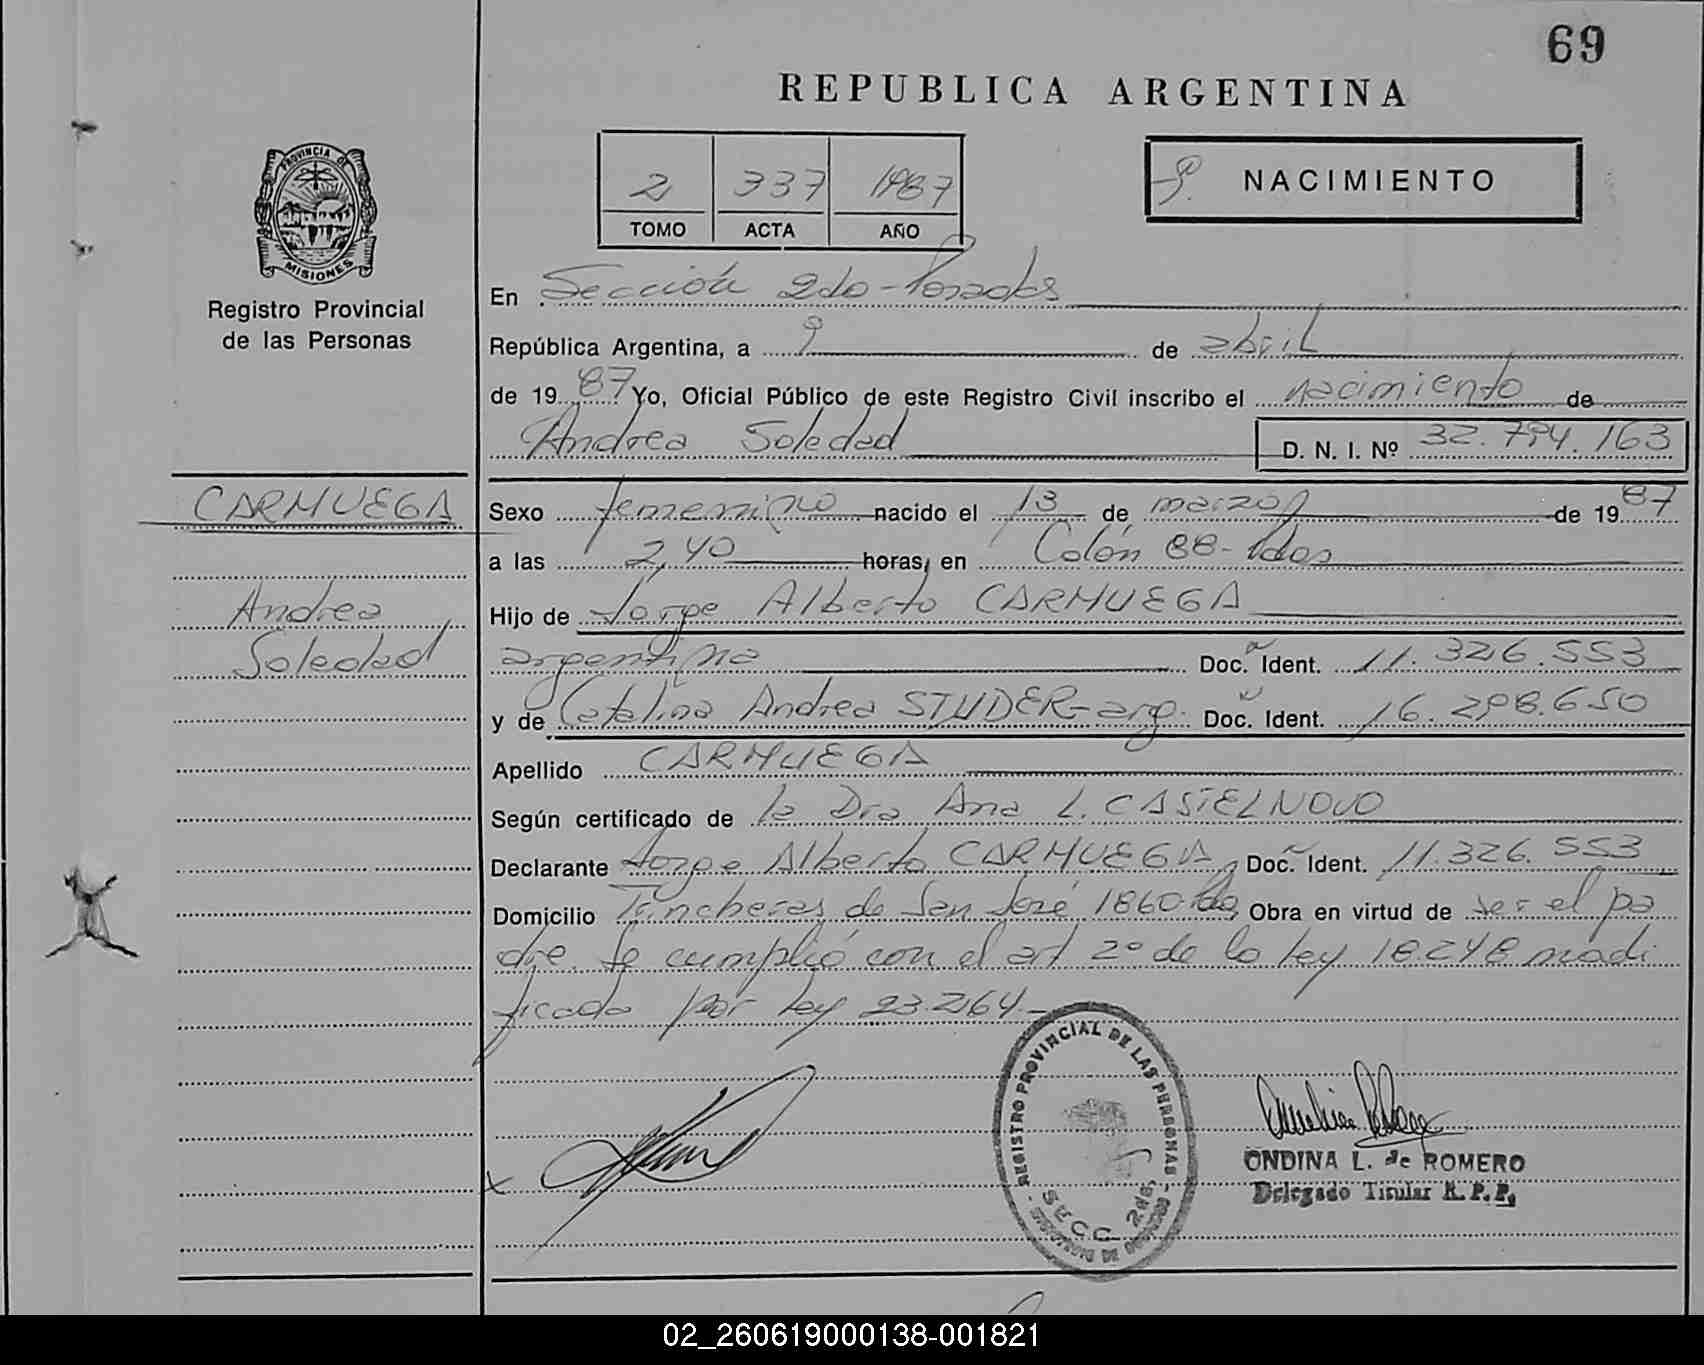 69
REPUBLICA ARGENTINA
2 337 1987
TOMO ACTA AÑO
9. NACIMIENTO
PROVINCIA DE
MISIONES
Registro Provincial
de las Personas
En Sección 2do - Posadas
República Argentina, a 9 de abril
de 1987 Yo, Oficial Público de este Registro Civil inscribo el nacimiento de
Andrea Soledad D. N. I. Nº 32.794.163
CARMUEGA
Andrea
Soledad
Sexo femenino nacido el 13 de marzo de 1987
a las 2,40 horas, en Colón 88 - Pdas
Hijo de Jorge Alberto CARMUEGA
argentina Doc. Ident. 11.326.553
y de Catalina Andrea STUDER - arg. Doc. Ident. 16.298.650
Apellido CARMUEGA
Según certificado de la Dra Ana L. CASTELNOVO
Declarante Jorge Alberto CARMUEGA Doc. Ident. 11.326.553
Domicilio Trincheras de San José 1860 Pdas Obra en virtud de ser el pa
dre. Se cumplió con el art 2º de la ley 18.248 modi
ficada por ley 23.264.-
REGISTRO PROVINCIAL DE LAS PERSONAS
SECC. 2da.
ONDINA L. de ROMERO
Delegado Titular R. P. P.
02_260619000138-001821